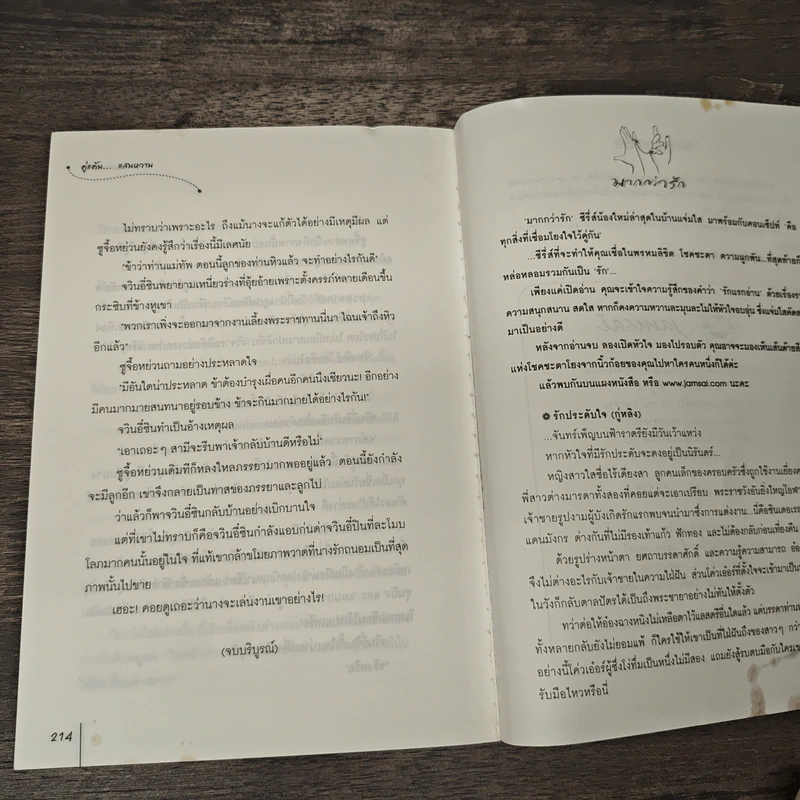 คู่แค้น... แสนหวาน
ไม่ทราบว่าเพราะอะไร ถึงแม้นางจะแก้ตัวได้อย่างมีเหตุมีผล แต่
ซูจื้อหย่วนยังคงรู้สึกว่าเรื่องนี้มีเลศนัย
"ข้าว่าท่านแม่ทัพ ตอนนี้ลูกของท่านหิวแล้ว จะทำอย่างไรกันดี"
จวินอี่ซินพยายามเหนี่ยวร่างที่อุ้ยอ้ายเพราะตั้งครรภ์หลายเดือนขึ้น
กระซิบที่ข้างหูเขา
"พวกเราเพิ่งจะออกมาจากงานเลี้ยงพระราชทานนี่นา ไฉนเจ้าถึงหิว
อีกแล้ว"
ซูจื้อหย่วนถามอย่างประหลาดใจ
"มีอันใดน่าประหลาด ข้าต้องบำรุงเผื่อคนอีกคนนึงเชียวนะ! อีกอย่าง
มีคนมากมายสนทนาอยู่รอบข้าง ข้าจะกินมากมายได้อย่างไรกัน!"
จวินอี่ซินทำเป็นอ้างเหตุผล
"เอาเถอะๆ สามีจะรีบพาเจ้ากลับบ้านดีหรือไม่"
ซูจื้อหย่วนเดิมทีก็หลงใหลภรรยามากพออยู่แล้ว ตอนนี้ยังกำลัง
จะมีลูกอีก เขาจึงกลายเป็นทาสของภรรยาและลูกไป
ว่าแล้วก็พาจวินอี่ซินกลับบ้านอย่างเบิกบานใจ
แต่ที่เขาไม่ทราบก็คือจวินอี่ซินกำลังแอบก่นด่าจวินอี่ปินที่ละโมบ
โลภมากคนนั้นอยู่ในใจ ที่แท้เขากล้าขโมยภาพวาดที่นางรักถนอมเป็นที่สุด
ภาพนั้นไปขาย
เฮอะ! คอยดูเถอะว่านางจะเล่นงานเขาอย่างไร!
(จบบริบูรณ์)
214
มากกว่ารัก
'มากกว่ารัก' ซีรี่ส์น้องใหม่ล่าสุดในบ้านแจ่มใส มาพร้อมกับคอนเซ็ปท์ 'คือ
ทุกสิ่งที่เชื่อมโยงใจไว้คู่กัน'
...ซีรี่ส์ที่จะทำให้คุณเชื่อในพรหมลิขิต โชคชะตา ความผูกพัน...ที่สุดท้ายก็
หล่อหลอมรวมกันเป็น 'รัก'...
เพียงแค่เปิดอ่าน คุณจะเข้าใจความรู้สึกของคำว่า 'รักแรกอ่าน' ด้วยเรื่อง
ความสนุกสนาน สดใส หากก็คงความหวานละมุนละไมให้หัวใจอบอุ่น ซึ่งแจ่มใสคัดสรร
มาเป็นอย่างดี
หลังจากอ่านจบ ลองเปิดหัวใจ มองไปรอบตัว คุณอาจจะมองเห็นเส้นด้าย
แห่งโชคชะตาโยงจากนิ้วก้อยของคุณไปหาใครคนหนึ่งก็ได้ค่ะ
แล้วพบกันบนแผงหนังสือ หรือ www.jamsai.com นะคะ
รักประดับใจ (กู่หลิง)
...จันทร์เพ็ญบนฟ้าราตรียังมีวันเว้าแหว่ง
หากหัวใจที่มีรักประดับจะคงอยู่เป็นนิรันดร์...
หญิงสาวใสซื่อไร้เดียงสา ลูกคนเล็กของครอบครัวซึ่งถูกใช้งานเยี่ยง
พี่สาวต่างมารดาทั้งสองที่คอยแต่จะเอาเปรียบ พระราชวังอันยิ่งใหญ่
เจ้าชายรูปงามผู้บังเกิดรักแรกพบจนนำมาซึ่งการแต่งงาน...นี่คือซินเดอเรล
แดนมังกร ต่างกันที่ไม่มีรองเท้าแก้ว ฟักทอง และไม่ต้องกลับก่อนเที่ยงคืน
ด้วยรูปร่างหน้าตา ยศถาบรรดาศักดิ์ และความรู้ความสามารถ
จึงไม่ต่างอะไรกับเจ้าชายในความใฝ่ฝัน ส่วนโค่วเอ๋อร์ที่ตั้งใจจะเข้ามาเป็น
ในวังก็กลับตาลปัตรได้เป็นถึงพระชายาอย่างไม่ทันให้ตั้งตัว
ทว่าต่อให้อ๋องฉางหนิงไม่เหลือตาไว้แลสตรีอื่นใดแล้ว แต่บรรดาท่าน
ทั้งหลายกลับยังไม่ยอมแพ้ ก็ใครใช้ให้เขาเป็นที่ใฝ่ฝันถึงของสาวๆ กว่า
อย่างนี้โค่วเอ๋อร์ผู้ซึ่งโง่ทึ่มเป็นหนึ่งไม่มีสอง แถมยังสู้รบตบมือกับใคร
รับมือไหวหรือนี่